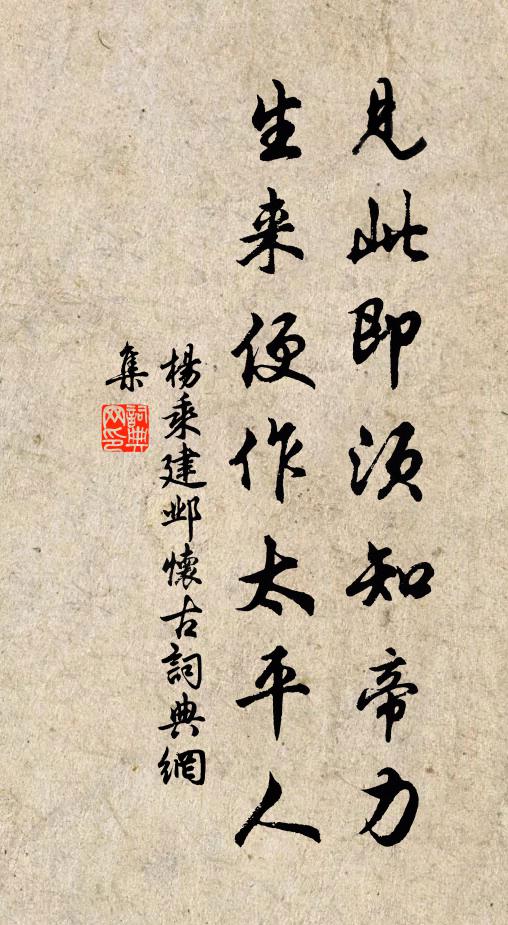 見此即須知帝力
生来便作太平人
楊乘建邺懷古詞典網
集
詞典
网印